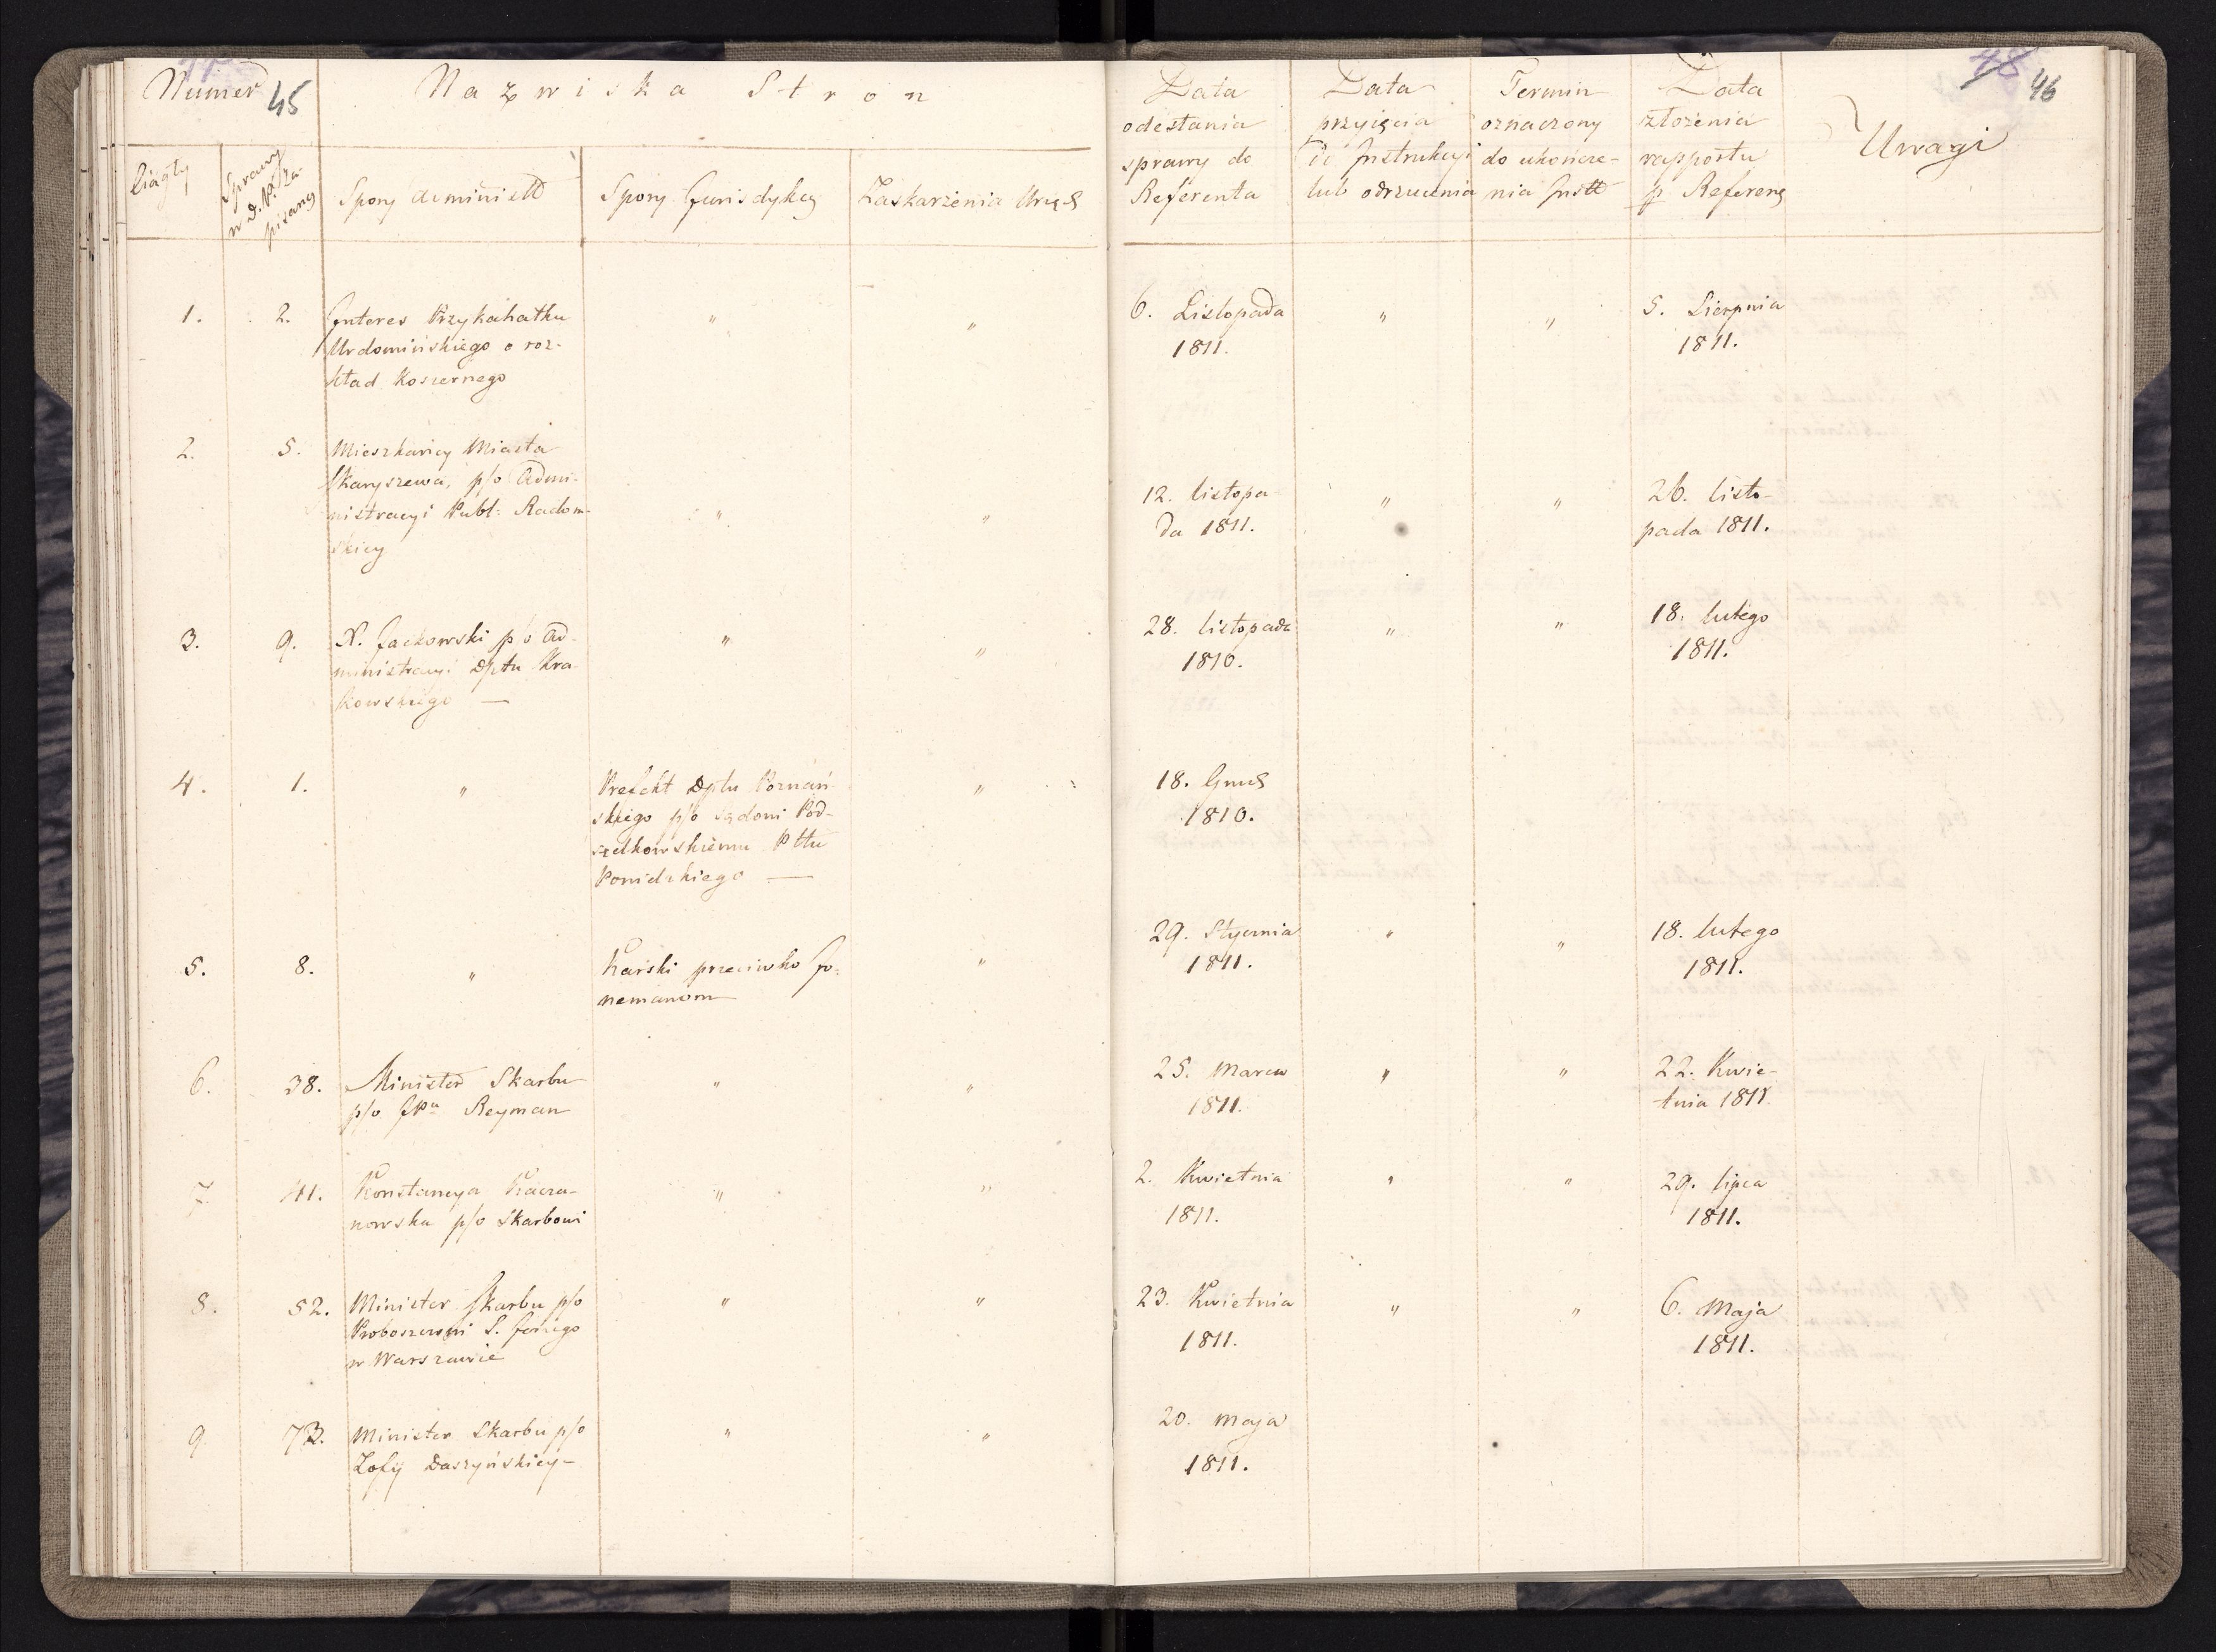 Numer 45
Nazwiska Stron
Ciągły
Sprawy
w D. P. za-
pisaney
Spory administ
Spory Jurisdykcy
Zaskarżenia Urzęd
Data
odesłania
sprawy do
Referenta
Data
przyięcia
do Instrukcyi
lub odrzucenia
Termin
oznaczony
do ukończe-
nia Instr
Data
złożenia
rapportu
p. Referen
48 46
Uwagi
1. 2. Interes Przykahałku
Wrdomińskiego o roz-
kład Koszernego
" "
6. Listopada
1811.
" "
5. Sierpnia
1811.
2. 5. Mieszkańcy Miasta
Skaryszewa, p/o Admi-
nistracyi Publ: Radom-
skiey
" "
12. listopa-
da 1811.
" "
26. listo-
pada 1811.
3. 9. X. Jackowski p/o Ad-
ministracyi Dptu Kra-
kowskiego —
" "
28. listopada
1810.
" "
18. lutego
1811.
4. 1. "
Prefekt Dptu Poznań-
skiego p/o sądowi Pod-
sędkowskiemu Pttu
Powidzkiego —
"
18. Grud
1810.
5. 8. "
Karski przeciwko Jo-
nemanom
"
29. Stycznia
1811.
" "
18. lutego
1811.
6. 38. Minister Skarbu
p/o JPu Reyman
" "
25. Marca
1811.
" "
22. Kwie-
tnia 1811
7. 41. Konstancya Kacza-
nowska p/o Skarbowi
" "
2. Kwietnia
1811.
" "
29. lipca
1811.
8. 52. Minister Skarbu p/o
Proboszczowi S. Jerzego
w Warszawie
" "
23. Kwietnia
1811.
" "
6. Maja
1811.
9. 73. Minister Skarbu p/o
Zofij Daszyńskiey-
" "
20. maja
1811.